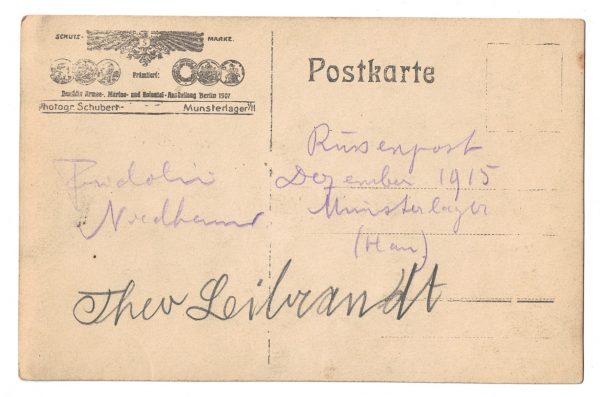 SCHUTZ- MARKE.
Prämiiert:
Deutsche Armee-, Marine- und Kolonial-Ausstellung Berlin 1907
Photogr. Schubert- Munsterlager
Postkarte
Russenpost
Dezember 1915
Munsterlager
(Han)
Fridolin
Theo Leibrandt